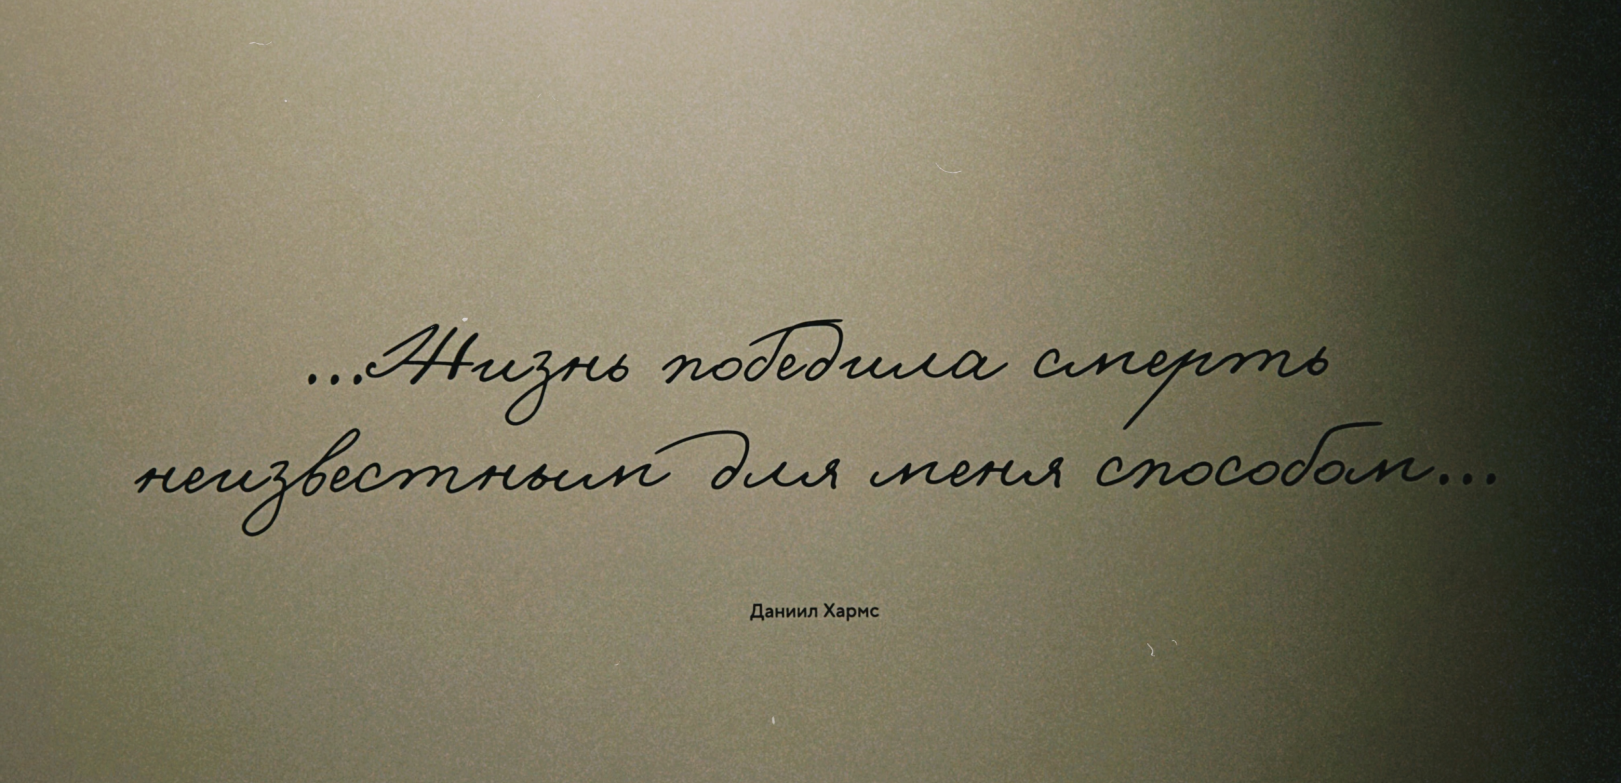 ...Жизнь победила смерть
неизвестным для меня способом...
Даниил Хармс